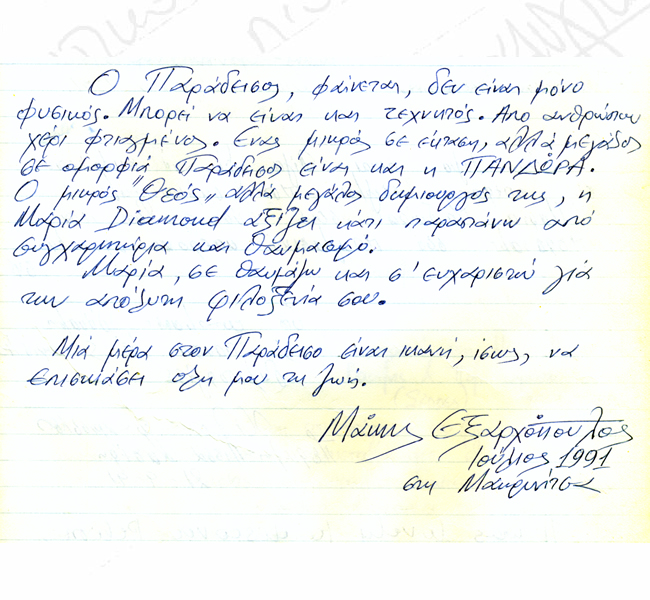 Ο Παράδεισος, φαίνεται, δεν είναι μόνο
φυσικός. Μπορεί να είναι και τεχνητός. Από ανθρώπου
χέρι φτιαγμένος. Ένας μικρός σε έκταση, αλλά μεγάλος
σε ομορφιά Παράδεισος είναι και η ΠΑΝΔΩΡΑ.
Ο μικρός "Θεός" αλλά μεγάλος δημιουργός της, η
Μαρία Diamond αξίζει κάτι παραπάνω από
συγχαρητήρια και θαυμασμό.
Μαρία, σε θαυμάζω και σ' ευχαριστώ για
την φιλοξενία σου.
Μιά μέρα στον Παράδεισο είναι ικανή, ίσως, να
επισκιάσει όλη μου τη ζωή.
Μάκης Εξαρχόπουλος
Ιούλιος 1991
στη Μακρινίτσα